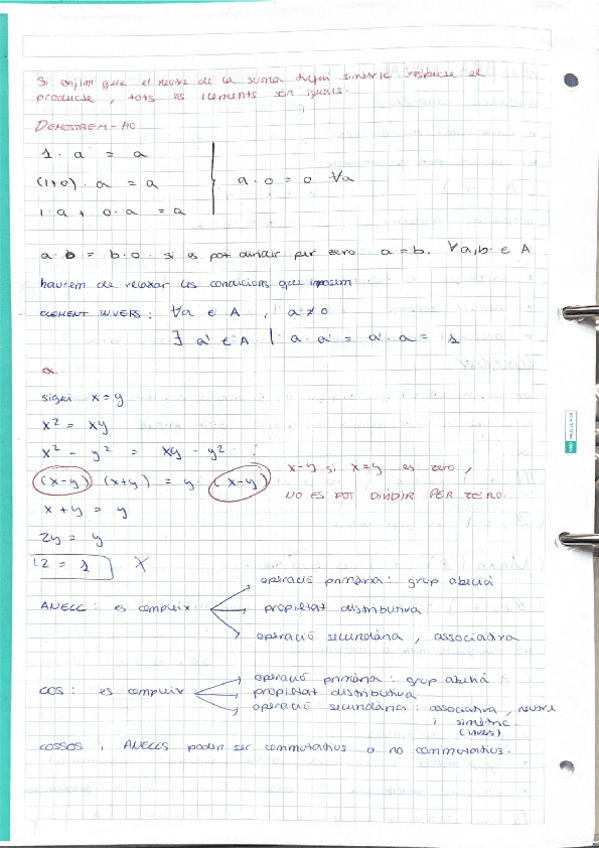 Si exigim que el neutre de la suma tingui simètric respecte el
producte, tots els elements són iguals.
DEMOSTREM-HO
1 · a = a
(1+0) · a = a
1 · a + 0 · a = a
a · 0 = 0 ∀a
a · 0 = b · 0 si es pot dividir per zero a = b. ∀a,b ∈ A
haurem de relaxar les condicions que imposem
ELEMENT INVERS: ∀a ∈ A , a ≠ 0
∃ a' ∈ A | a · a' = a' · a = 1
sigui x = y
x² = xy
x² - y² = xy - y²
(x-y) (x+y) = y (x-y)
x-y si x=y es zero,
NO ES POT DIVIDIR PER ZERO.
x + y = y
2y = y
2 = 1 X
ANELL: es compleix
operació primària: grup abelià
propietat distributiva
operació secundària, associativa
COS: es compleix
operació primària: grup abelià
propietat distributiva
operació secundària: associativa, neutre
i simètric
(invers)
COSSOS i ANELLS poden ser commutatius o no commutatius.